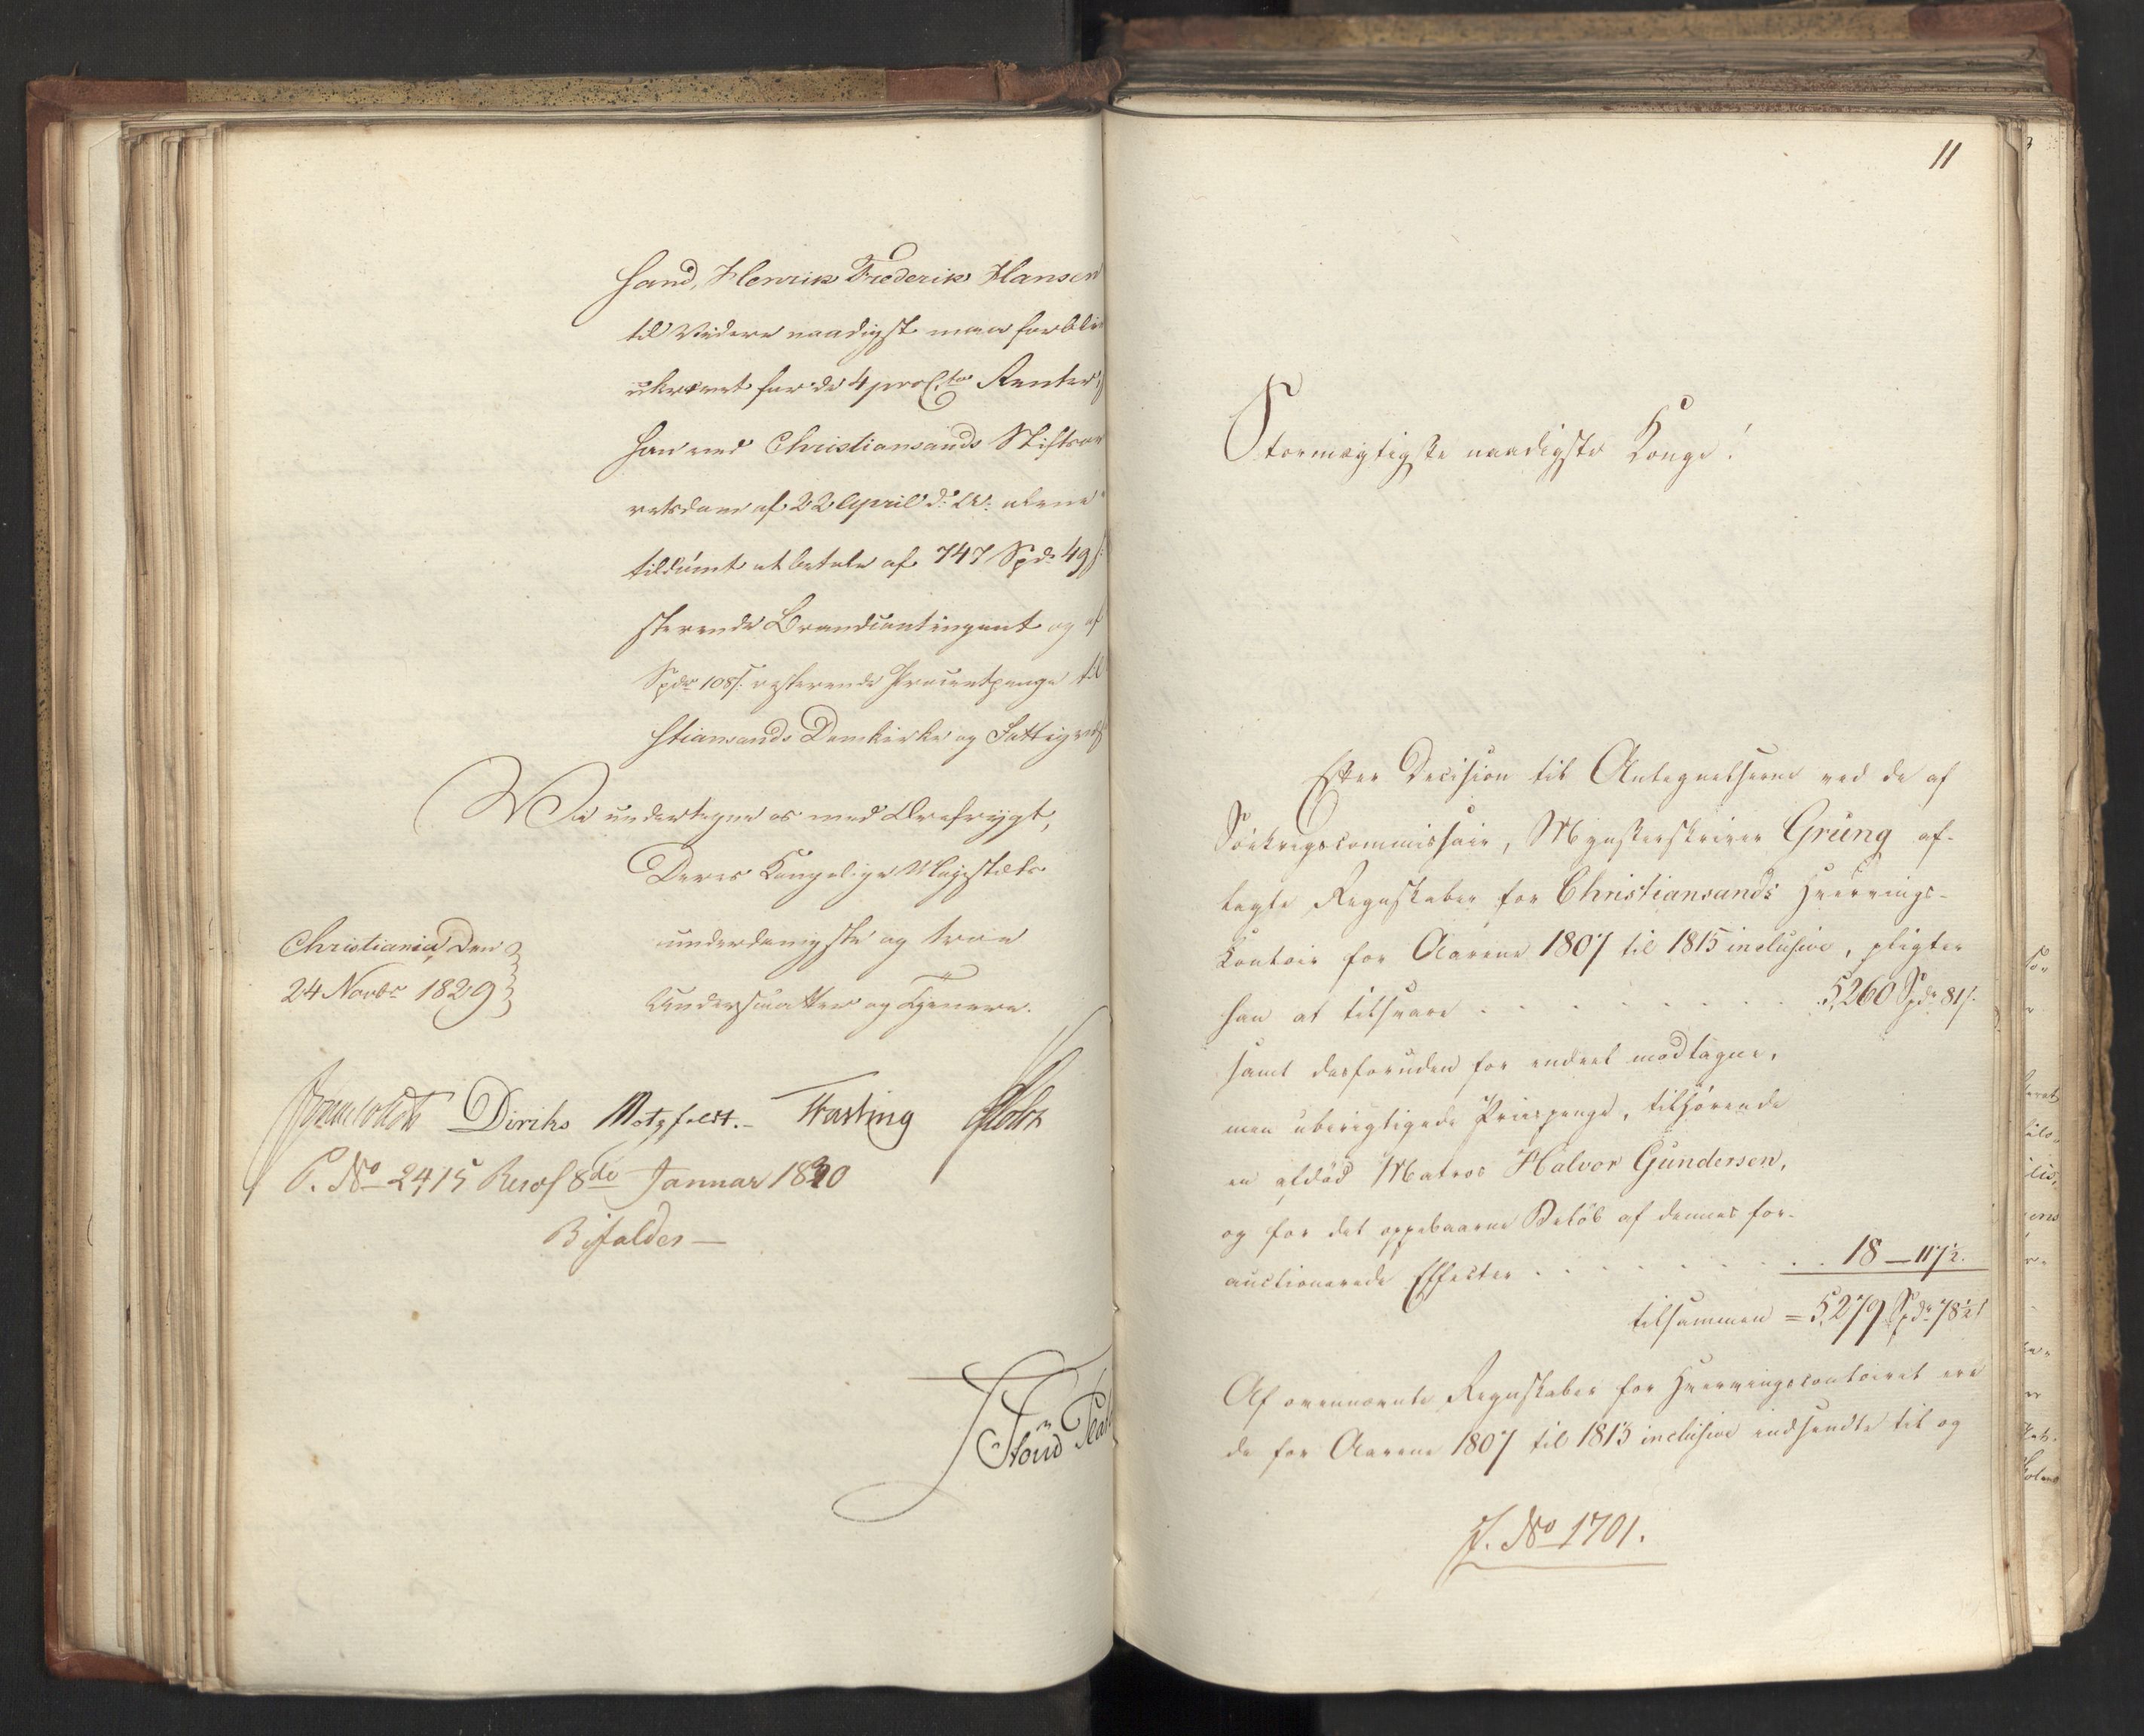 sand, Henrik Frederik Hansen
til Videre naadigst maa forbliv
ukrævet for de 4 pro C.to Renter,
han ved Christiansands Stiftsov
retsdom af 22 April d: A: alene
tildømt at betale af 747 Spd. 49 s.
sterende Brandcontingent og af
Spdr 108 s. resterende Procentpenge til
stiansands Domkirke og Fattigvæs
Vi undertegne os med Ærefrygt,
Deres Kongelige Majestæts
underdanigste og troe
Undersaatter og Tjenere.
Christiania, den
24 Novbr 1829
Diriks Motzfeldt. Fasting
P. No 2415 Resol 8de Januar 1830
Bifaldes—
11
Stormægtigste naadigste Konge!
Efter Decision til Antegnelserne ved de af
Söekrigscommissair, Mynsterskriver Grüng af-
lagte Regnskaber for Christiansands Hverrings-
Contoir for Aarene 1807 til 1815 inclusive, pligter
han at tilsvare . . . . . . . . . 5,260 Spdr 81 s.
samt desforuden for endeel modtagne,
men uberigtigede Priispenge, tilhørende
en afdød Matros Halvor Gundersen,
og for det oppebaarne Beløb af dennes for-
auctionerede Effecter . . . . . . . . . 18 — 117½.
tilsammen = 5,279 Spdr 78½ s
Af ovennævnte Regnskaber for Hverringscontoiret ere
de for Aarene 1807 til 1813 inclusive indsendte til og
J. No 1701.